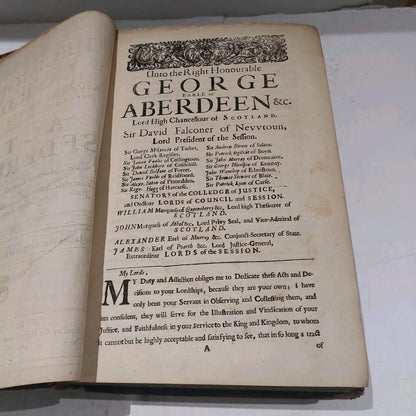 Unto the Right Honourable
GEORGE
EARLE of
ABERDEEN &c.
Lord High Chancellour of SCOTLAND.
Sir David Falconer of Nevvtoun,
Lord President of the Session.
Sir George Mckenzie of Tarbet, Sir Andrew Birnie of Saline.
Lord Clerk-Register. Sir Patrick Ogilvie of Boyn.
Sir James Foulis of Collingtoun. Sir John Murray of Drumcairn.
Sir John Lockhart of Castlehill. Sir George Nicolson of Kemnay.
Sir David Balfour of Forret. John Wauchop of Edmonstoun.
Sir James Foulis of Reidfoord. Sir Thomas Stewart of Blair.
Sir Alexr. Seton of Pitmedden. Sir Patrick Lyon of Carse.
Sir Roger Hog of Harcarse.
SENATORS of the COLLEDGE of JUSTICE,
and Ordinar LORDS of COUNCIL and SESSION.
WILLIAM Marquess of Queensberry &c. Lord high Thesaurer of
SCOTLAND.
JOHN Marquess of Athol &c. Lord Privy Seal, and Vice-Admiral of
SCOTLAND.
ALEXANDER Earl of Murray &c. Conjunct-Secretary of State.
JAMES Earl of Pearth &c. Lord Justice-General,
Extraordinar LORDS of the SESSION.
My Lords,
MY Duty and Affection obliges me to Dedicate these Acts and De-
cisions to your Lordships, because they are your own; I have
only been your Servant in Observing and Collecting them, and
am confident, they will serve for the Illustration and Vindication of your
Justice, and Faithfulness in your Service to the King and Kingdom, to whom
it cannot but be highly acceptable and satisfying to see, that in so long a tract
A of